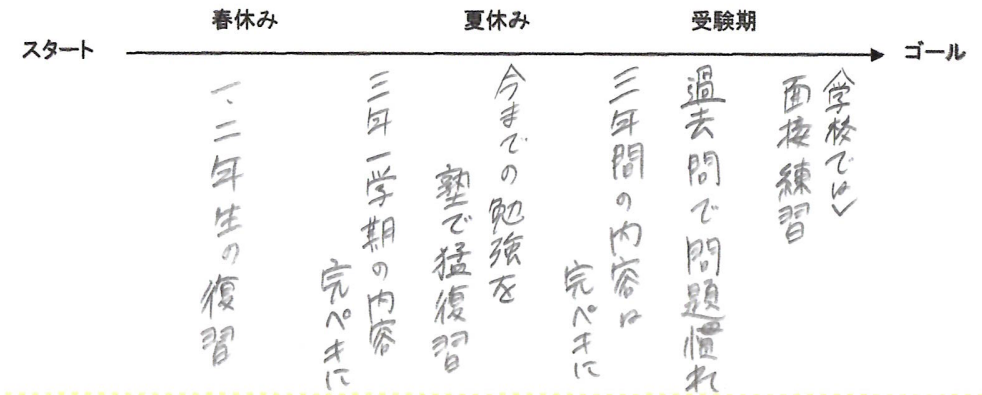 春休み
夏休み
受験期
スタート
ゴール
一、二年生の復習
三年一学期の内容
完ペキに
今までの勉強を
塾で猛復習
三年間の内容は
完ペキに
過去問で問題慣れ
〈学校では〉
面接練習